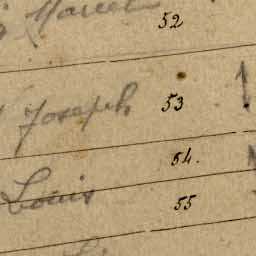 Marcel 52
Joseph 53
54.
Louis 55